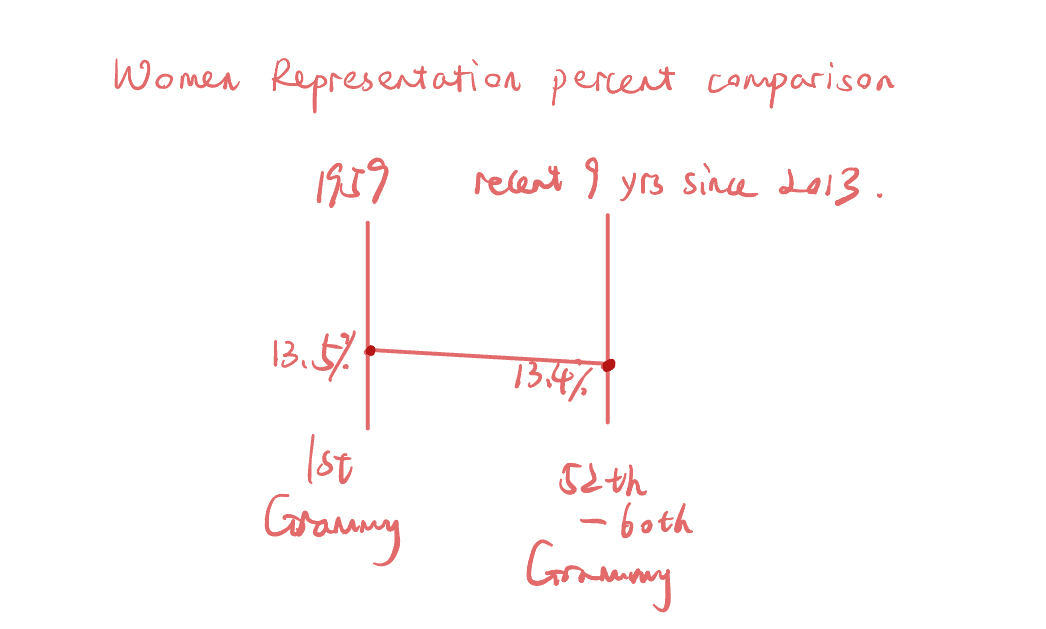 Women Representation percent comparison
1959 recent 9 yrs since 2013.
13.5%
13.4%
1st
Grammy
52th
- 60th
Grammy